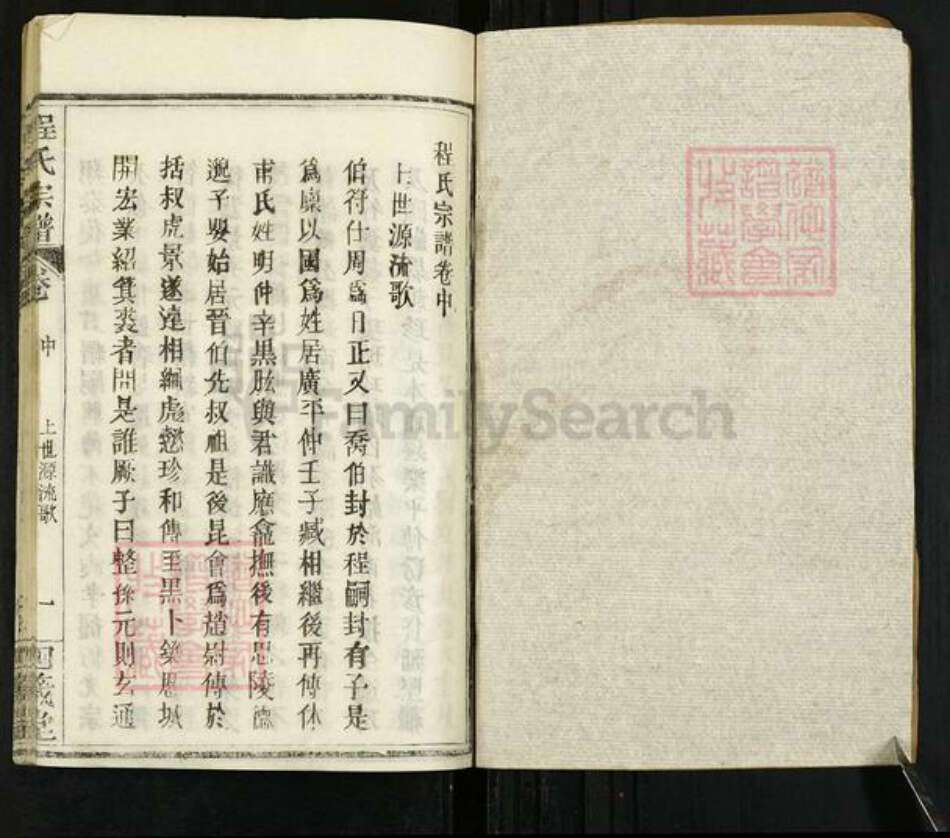 程氏宗譜卷中
上世源流歌
伯符仕周爲日正又曰喬伯封於程嗣封有子是
爲廩以國爲姓居廣平仲壬子臧相繼後再傳休
甫氏姓明仲辛黑肱與君識應龕撫後有思陵
邈子嬰始居晉伯先叔祖是後昆會爲趙尉傳於
括叔虎景遂遠相綱彪懿珍和傳至黑卜樂恩城
開宏業紹箕裘者問是誰厥子曰整孫元則玄通
程氏宗譜
卷中
上世源流歌
一
FamilySearch